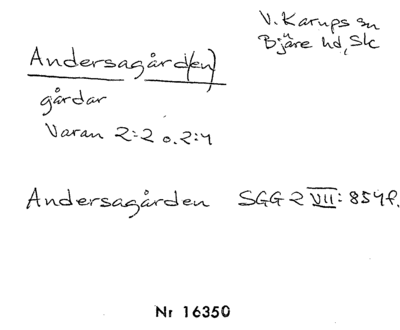 V. Karups sn
Bjäre hd, Sk
Andersagård(en)
gårdar
Varan 2:2 o. 2:4
Andersagården SGG 2 VII: 854f.
Nr 16350